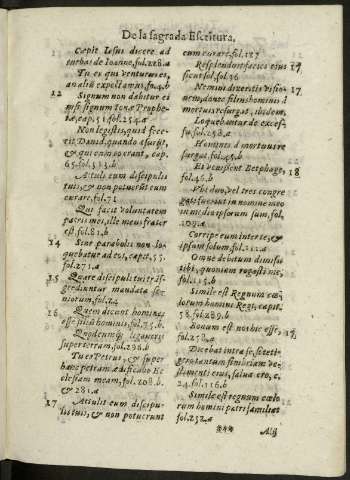 De la sagrada Escritura.
Cœpit Iesus dicere ad
turbas de Ioanne, fol. 228.a
Tu es qui venturus es,
an aliũ expectamus, fu. 4.b
12 Signum non dabitur ei
nisi signum Ionæ Prophe-
tæ, cap, 51. fol. 254.a
Non legistis, quid fece-
rit Dauid, quando esurijt,
& qui cum eo erant, cap,
65. fol, 313.b
Attuli eum discipulis
tuis, & non potuerũt eum
curare, fol. 71
Qui facit voluntatem
patris mei, ille meus frater
est fol. 81.b
14 Sine parabolis non lo-
quebatur ad eos, capit, 55.
fol. 271.a
15 Quare discipuli tui trãs-
grediuntur mandata se-
niorum, fol. 24
16 Quem dicunt homines
esse filiũ hominis, fol, 75.b.
Quodcumq; ligaueris
super terram, fol. 296.b
Tu es Petrus, & super
hanc petram ædificabo Ec-
clesiam meam, fol. 208.b.
& 281.a
17 Attulit eum discipu-
lis tuis, & non potuerunt
eum curare, fol. 127
Resplenduit facies eius 17
sicut sol, fol. 36
Nemini dixeritis visio- 17.
nem, donec filius hominis à
mortuis resurgat, ibidem,
Loquebantur de exces-
su, fol. 258.a
Hominis à mortuis re
surgat, fol. 45.b
Et venissent Betphage, 18
fol. 46.b
Vbi duo, vel tres congre
gati fuerint in nomine meo
in medio ipsorum sum, fol,
209.a
Corripe eum inter te, &
ipsum solum, fol. 212.a
Omne debitum dimisi
tibi, quoniam rogasti me,
fol. 115.b
Simile est Regnum cœ-
lorum homini Regi, capit.
58, fol. 289.b
Bonum est nos hic esse, 17
fol. 258.a
Dicebat intra se, si teti-
gero tantum fimbriam ve-
stimenti eius, salua ero, c.
24. fol. 116.b
Simile est regnum cœlo
rum homini patri familias
fol. 252.a
Alij